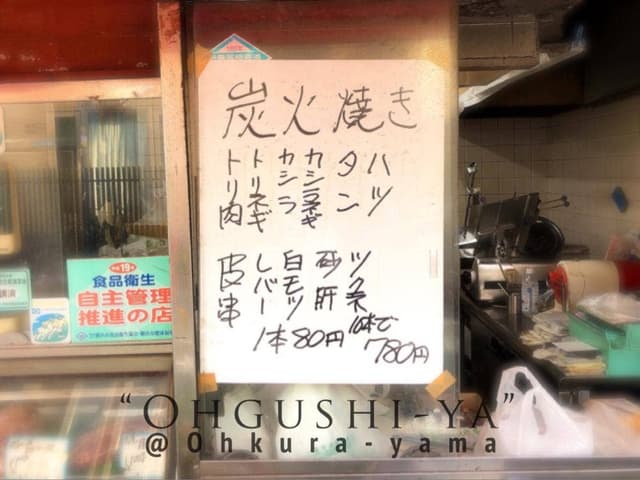 炭火焼き
ハツ
タン
カシラネギ
カシラ
トリネギ
トリ肉
ツクネ
砂肝
白モツ
レバー
皮串
1本80円
10本で
780円
平成19年
食品衛生
自主管理
推進の店
"OHGUSHI-YA"
@Ohkura-yama